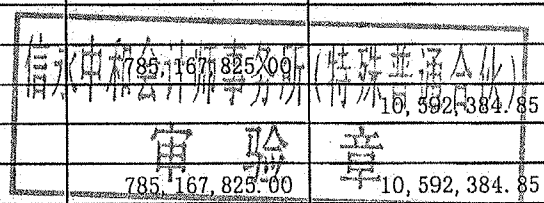 信永中和会计师事务所(特殊普通合伙)
785,167,825.00
10,592,384.85
审验章
785,167,825.00 10,592,384.85